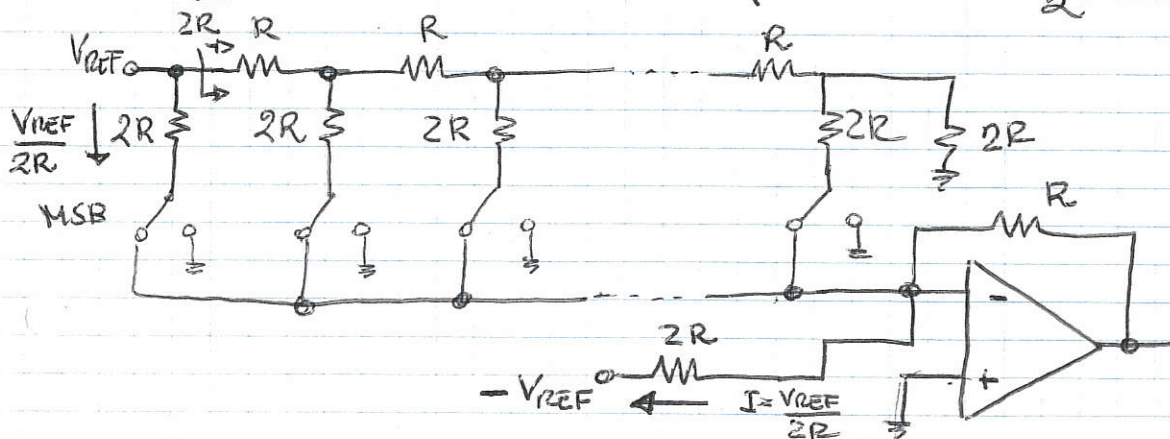 2
2R R R R
VREF
VREF/2R 2R 2R 2R 2R 2R
MSB
R
-
2R
+
- VREF I = VREF/2R